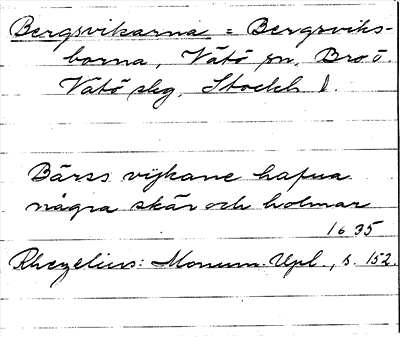 Bergsvikarna = Bergsviks-
borna, Vätö sn, Bro o.
Vätö skg, Stockh l.
Bärss vijkane hafua
några skär och holmar
1635
Rhezelius: Monum. Upl., s. 152.